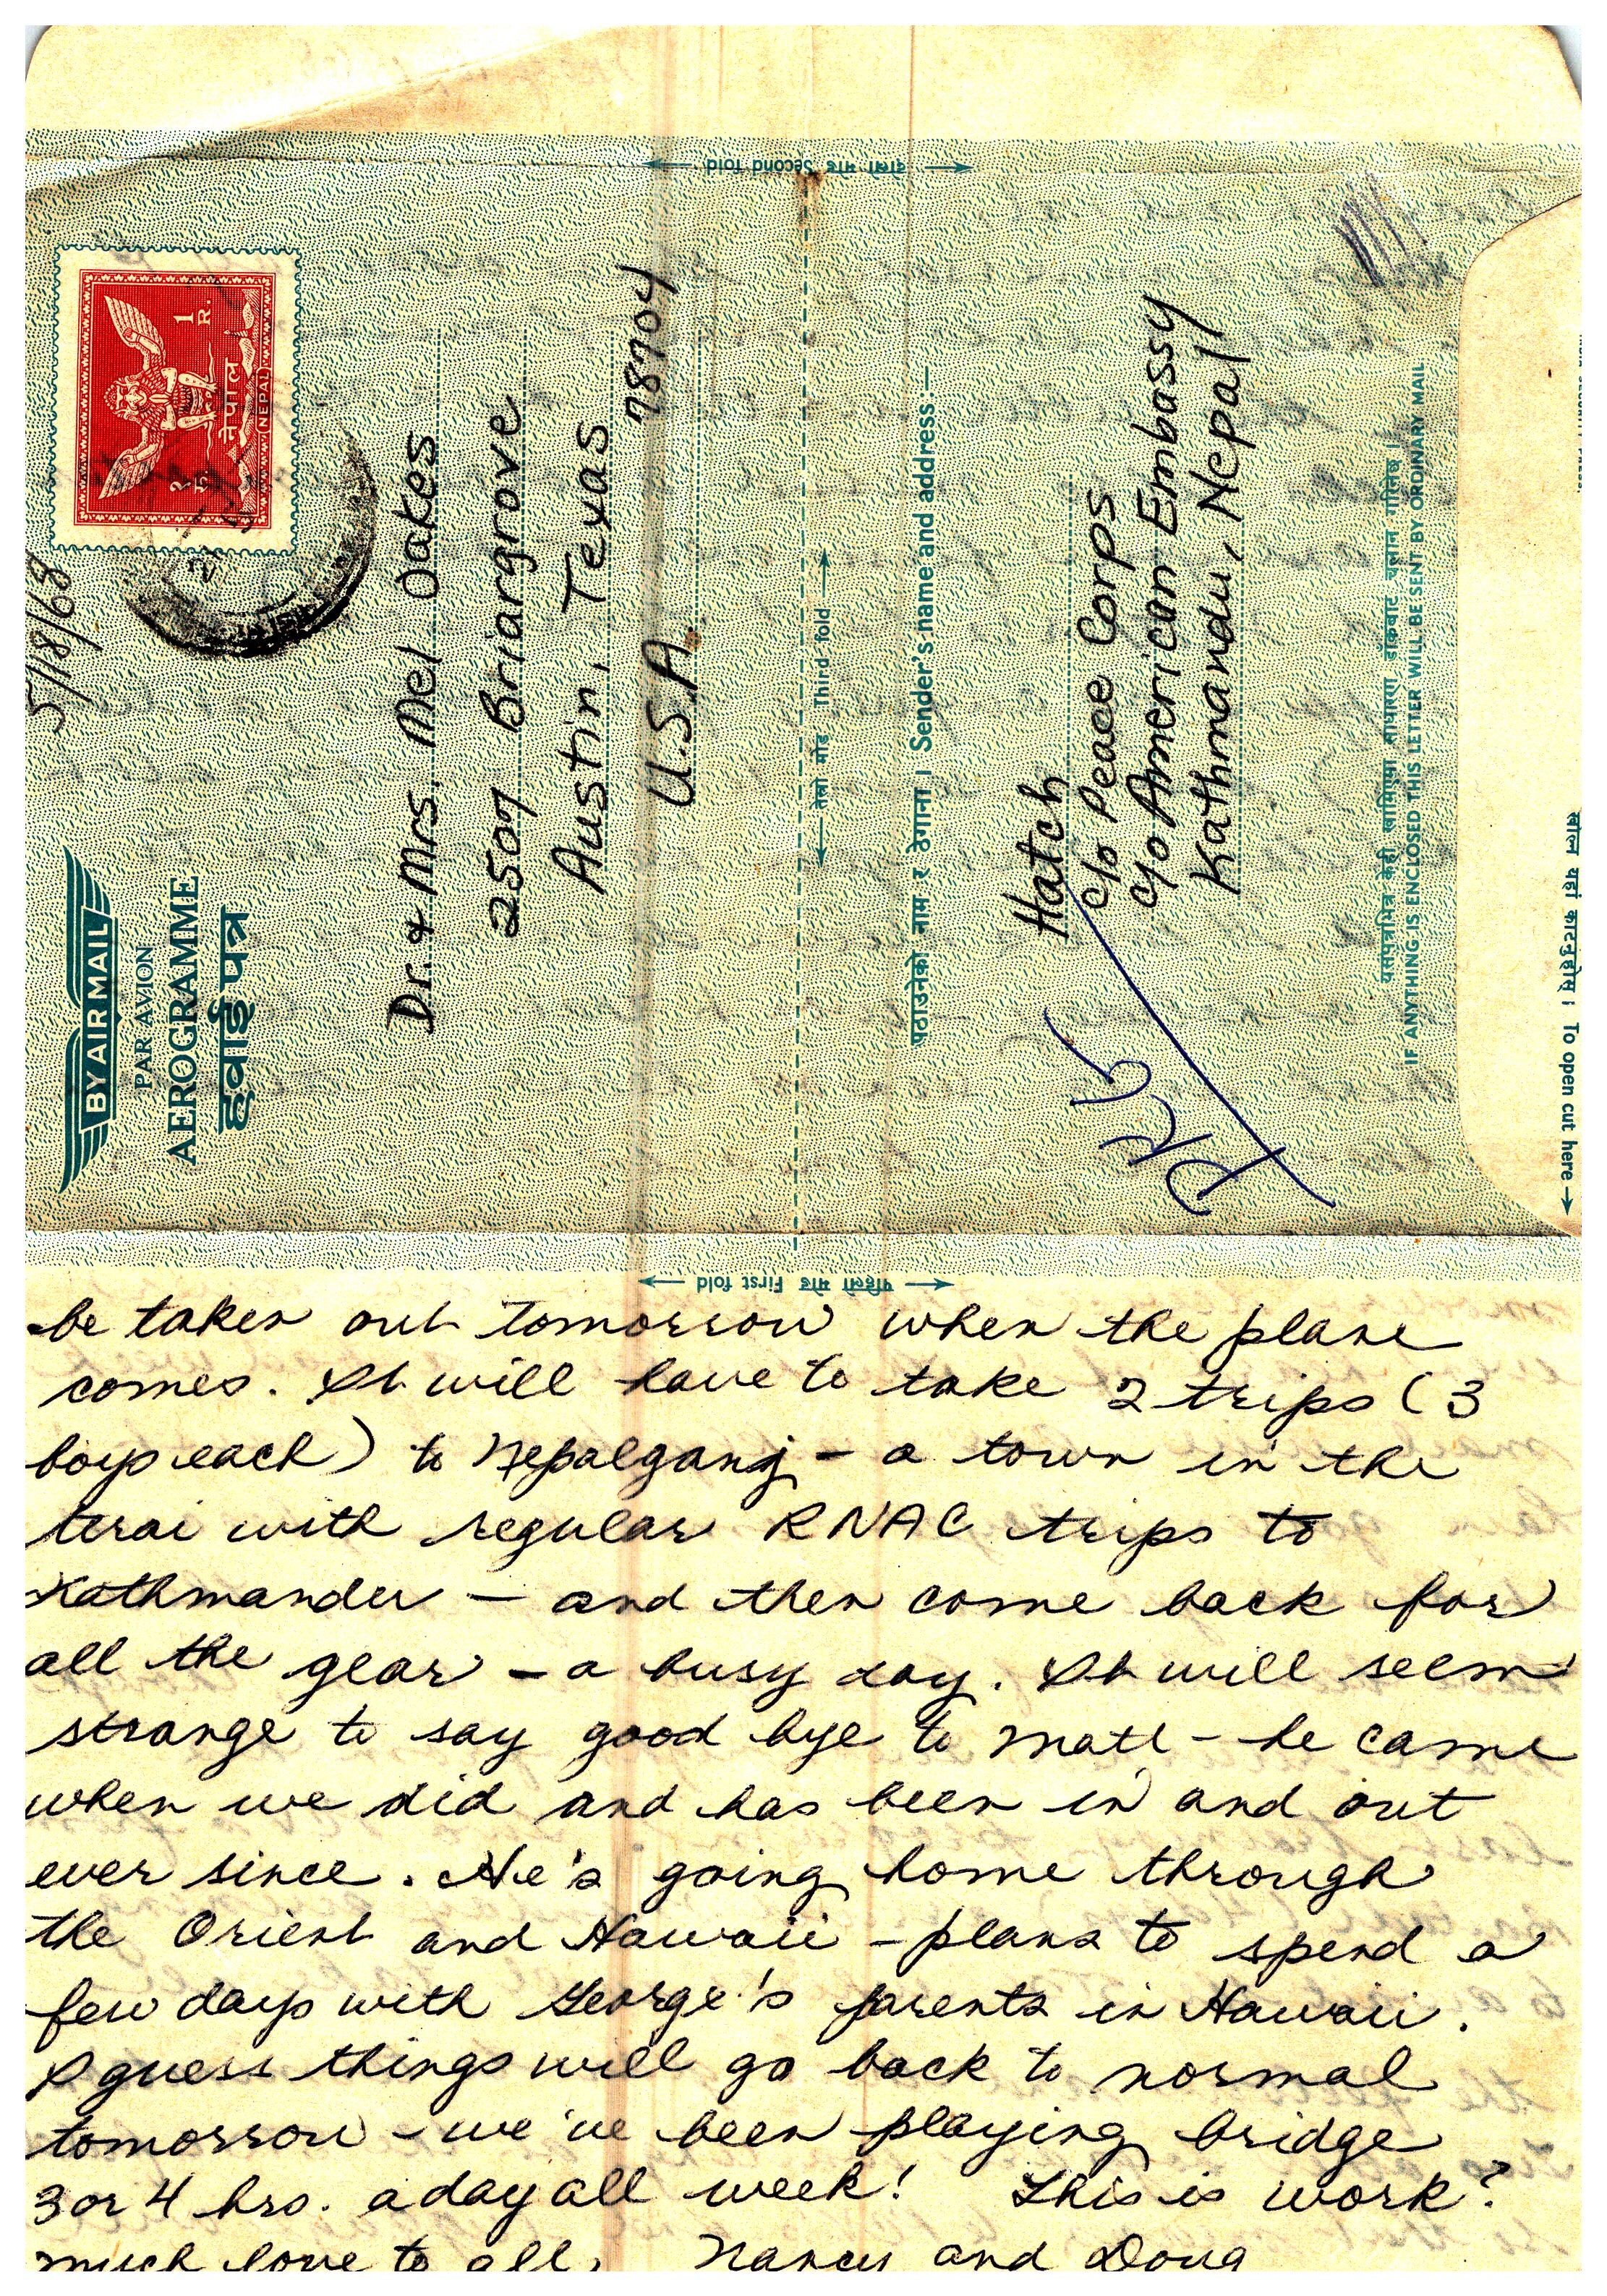 दोस्रो मोड Second fold
5/18/68
१ रु.
1 R.
नेपाल
NEPAL
BY AIR MAIL
PAR AVION
AEROGRAMME
हवाई पत्र
Dr. & Mrs. Mel Oakes
2507 Briargrove
Austin, Texas 78704
U.S.A.
तेस्रो मोड Third fold
पठाउनेको नाम र ठेगाना । Sender's name and address:—
Hatch
c/o Peace Corps
c/o American Embassy
Kathmandu, Nepal
यसपत्रभित्र केही खामिएमा साधारण डाँकबाट चलान गरिनेछ ।
IF ANYTHING IS ENCLOSED THIS LETTER WILL BE SENT BY ORDINARY MAIL
खोल्न यहां काट्नुहोस् । To open cut here →
पहिलो मोड First fold
be taken out tomorrow when the plane
comes. It will have to take 2 trips (3
boys each) to Nepalganj – a town in the
terai with regular RNAC trips to
Kathmandu – and then come back for
all the gear – a busy day. It will seem
strange to say good bye to Matt – he came
when we did and has been in and out
ever since. He's going home through
the Orient and Hawaii – plans to spend a
few days with George's parents in Hawaii.
I guess things will go back to normal
tomorrow – we've been playing bridge
3 or 4 hrs. a day all week! This is work?
much love to all, Nancy and Doug